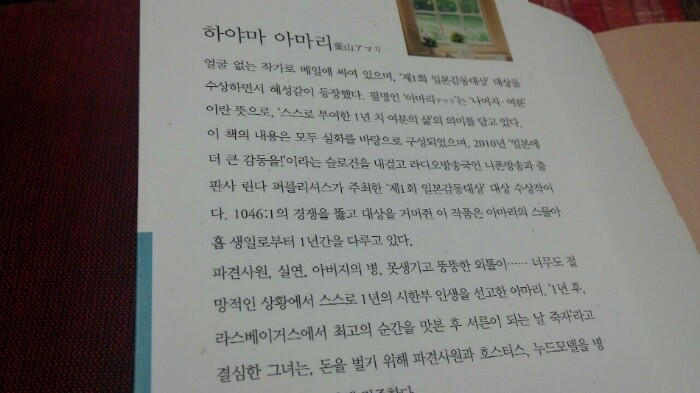 하야마 아마리 葉山アマリ
얼굴 없는 작가로 베일에 싸여 있으며, '제1회 일본감동대상' 대상을
수상하면서 혜성같이 등장했다. 필명인 '아마리アマリ'는 '나머지·여분'
이란 뜻으로, '스스로 부여한 1년 치 여분의 삶'의 의미를 담고 있다.
이 책의 내용은 모두 실화를 바탕으로 구성되었으며, 2010년 '일본에
더 큰 감동을!'이라는 슬로건을 내걸고 라디오방송국인 니폰방송과 출
판사 린다 퍼블리셔스가 주최한 '제1회 일본감동대상' 대상 수상작이
다. 1046:1의 경쟁을 뚫고 대상을 거머쥔 이 작품은 아마리의 스물아
홉 생일로부터 1년간을 다루고 있다.
파견사원, 실연, 아버지의 병, 못생기고 뚱뚱한 외톨이…… 너무도 절
망적인 상황에서 스스로 1년의 시한부 인생을 선고한 아마리. '1년 후,
라스베이거스에서 최고의 순간을 맛본 후 서른이 되는 날 죽자'라고
결심한 그녀는, 돈을 벌기 위해 파견사원과 호스티스, 누드모델을 병